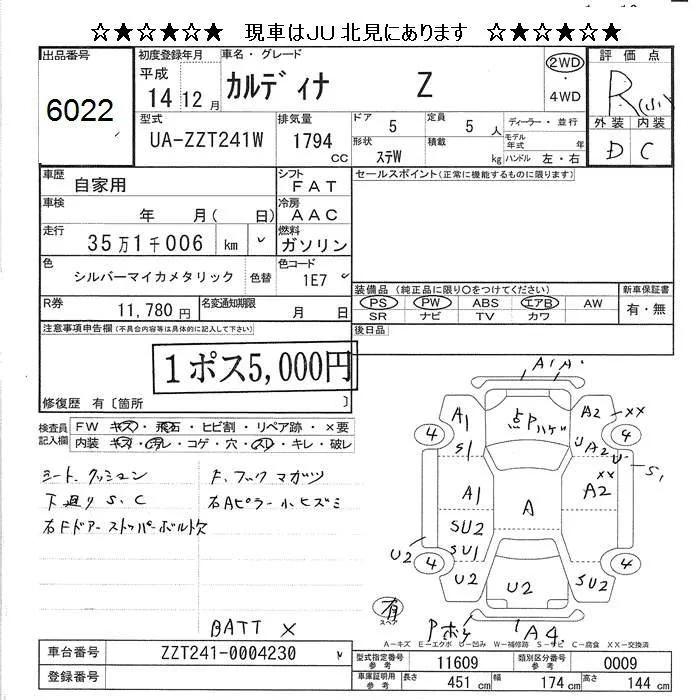 ☆★☆★☆★ 現車はJU北見にあります ☆★☆★☆★
出品番号
6022
初度登録年月
平成
14 12 月
車名・グレード
カルディナ Z
2WD
・
4WD
評価点
R(小)
外装 内装
D C
型式
UA-ZZT241W
排気量
1794 CC
ドア 5
定員 5 人
形状 ステW
積載 kg
ディーラー・並行
モデル年式 年
ハンドル 左・右
車歴
自家用
シフト
FAT
車検
年 月( 日)
冷房
AAC
走行
35万1千006 km
燃料
ガソリン
色
シルバーマイカメタリック
色替
色コード
1E7
R券
11,780 円
名変通知期限
月 日
セールスポイント(正常に機能するものに限ります。)
装備品(純正品に限り○をつけてください)
PS PW ABS エアB AW
SR ナビ TV カワ
新車保証書
有・無
後日品
注意事項申告欄(不具合内容等は具体的に記入して下さい)
1ポス5,000円
修復歴 有〔箇所 〕
検査員記入欄
FW キズ・飛石・ヒビ割・リペア跡・×要
内装 キズ・汚レ・コゲ・穴・スレ・キレ・破レ
シート、クッション
F.フックマガリ
下廻りS.C
右Aピラー小ヒズミ
右Fドアーストッパーボルト欠
BATT ×
A1 A1
A1 点PハゲA2 XX
4 4
S1 UA2 U
S1
A1 A A2 XX
SU2
SU1
U2
4 4
U2 U2 SU2
有
スペア
Pボケ A4
A-キズ E-エクボ U-凹み W-補修跡 S-サビ C-腐食 XX-交換済
車台番号
ZZT241-0004230
登録番号
型式指定番号 参考
11609
類別区分番号 参考
0009
車庫証明用 参考
長さ 451 cm
幅 174 cm
高さ 144 cm